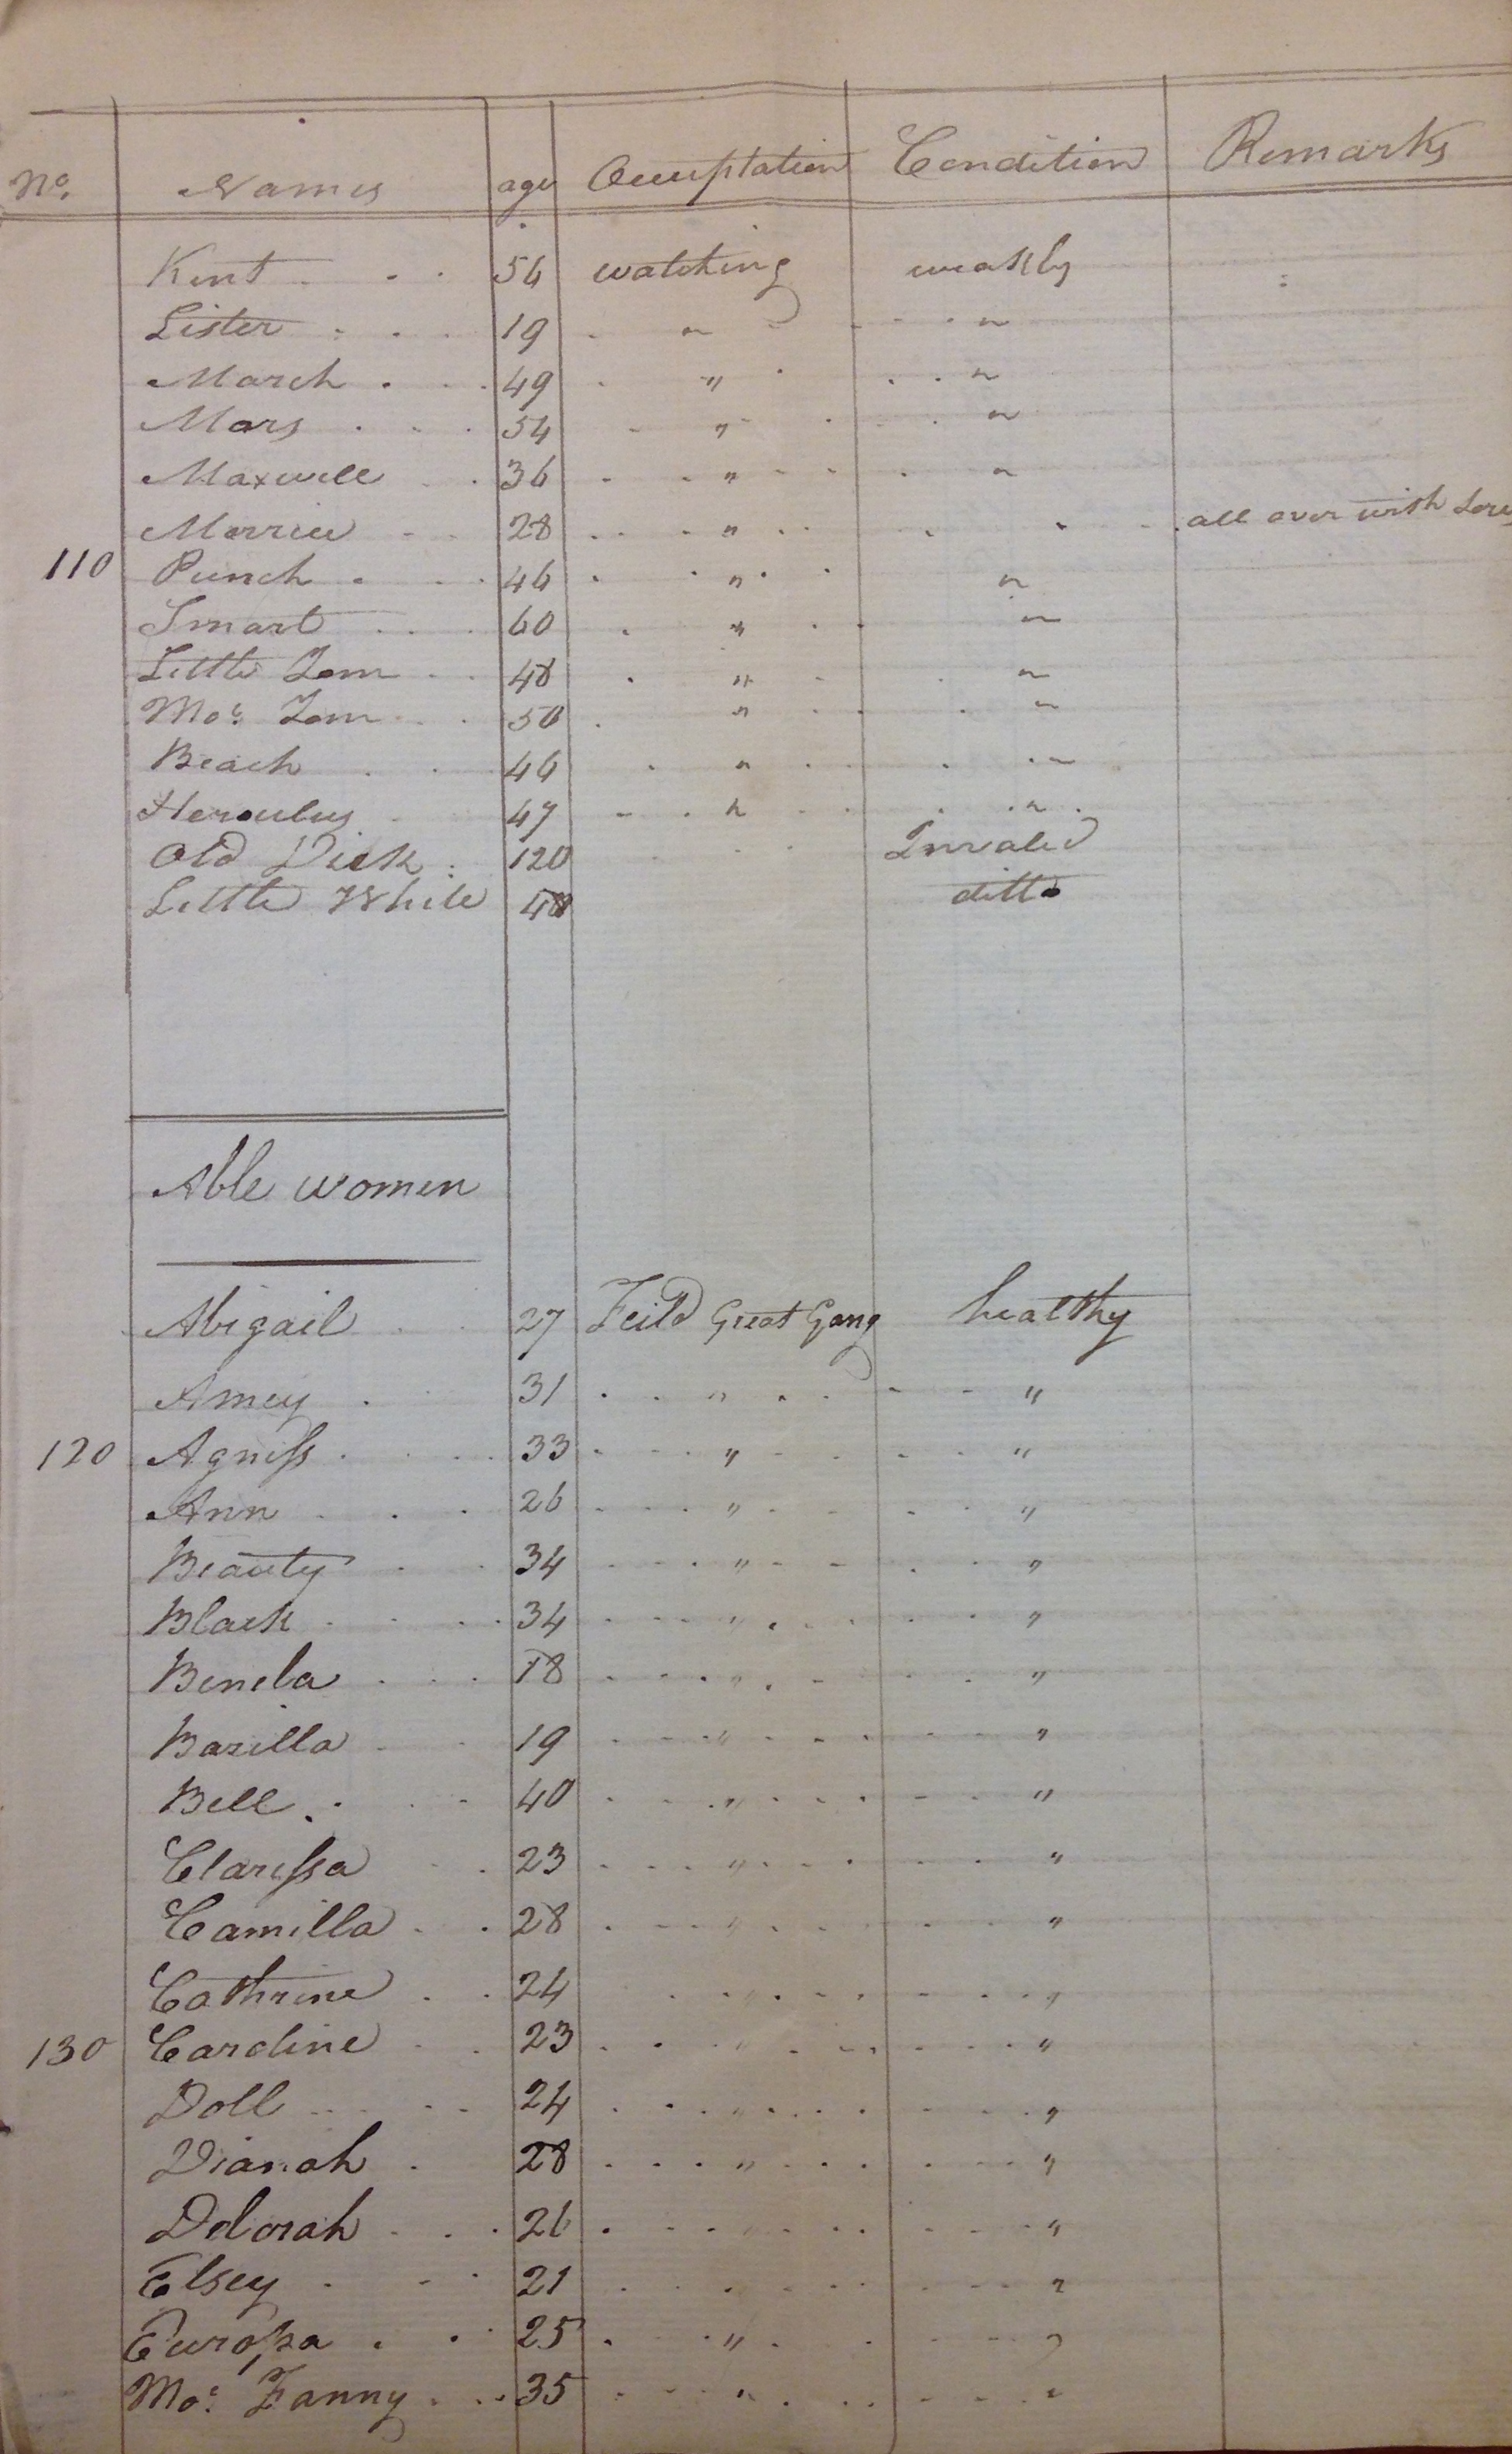 No. Names age Occuptation Condition Remarks
Kent 56 watching weakly
Lister 19 " "
March 49 " "
Mars 54 " "
Maxwell 36 " "
Morrice 28 " " all over with Sores
110 Punch 46 " "
Smart 60 " "
Little Tom 48 " "
Moc. Tom 50 " "
Beach 46 " "
Herculus 47 " "
Old Dick 120 Invalid
Little White 48 ditto
Able women
Abigail 27 Feild Great Gang healthy
Amey 31 " "
120 Agniss 33 " "
Ann 26 " "
Beauty 34 " "
Black 34 " "
Beneba 18 " "
Bazilla 19 " "
Bell 40 " "
Clarissa 23 " "
Camilla 28 " "
Cathrine 24 " "
130 Caroline 23 " "
Doll 24 " "
Dianah 28 " "
Deborah 26 " "
Elsey 21 " "
Europa 25 " "
Moc. Fanny 35 " "